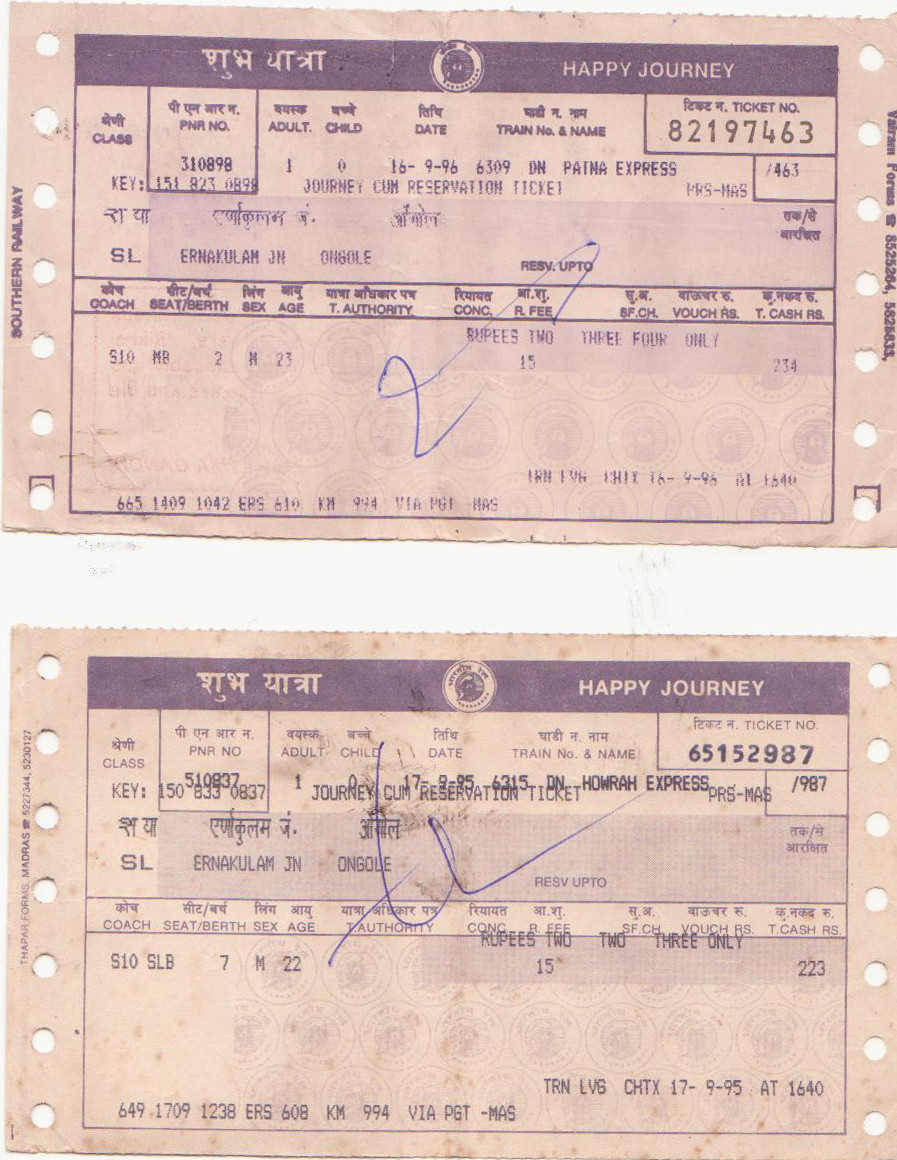 शुभ यात्रा HAPPY JOURNEY
श्रेणी पी एन आर न. वयस्क बच्चे तिथि गाडी न. नाम टिकट न. TICKET NO.
CLASS PNR NO. ADULT. CHILD DATE TRAIN No. & NAME 82197463
310898 1 0 16- 9-96 6309 DN PATNA EXPRESS /463
KEY: 151 823 0898 JOURNEY CUM RESERVATION TICKET PRS-MAS
श या एर्णाकुलम जं. ओंगोल तक/से
आरक्षित
SL ERNAKULAM JN ONGOLE RESV. UPTO
कोच सीट/बर्थ लिंग आयु यात्रा अधिकार पत्र रियायत आ.शु. सु.अ. वाऊचर रु. कु.नकद रु.
COACH SEAT/BERTH SEX AGE T. AUTHORITY CONC. R. FEE SF.CH. VOUCH RS. T. CASH RS.
RUPEES TWO THREE FOUR ONLY
S10 MB 2 M 23 15 234
TRN LVG CHTX 16- 9-96 AT 1640
665 1409 1042 ERS 610 KM 994 VIA PGT -MAS
SOUTHERN RAILWAY
Forms ☎ 8525264, 5826633,
शुभ यात्रा भारतीय रेल HAPPY JOURNEY
श्रेणी पी एन आर न. वयस्क बच्चे तिथि गाडी न. नाम टिकट न. TICKET NO.
CLASS PNR NO ADULT CHILD DATE TRAIN No. & NAME 65152987
510837 1 0 17- 9-95 6315 DN HOWRAH EXPRESS /987
KEY: 150 833 0837 JOURNEY CUM RESERVATION TICKET PRS-MAS
श या एर्णाकुलम जं. ओंगोल तक/से
आरक्षित
SL ERNAKULAM JN ONGOLE RESV UPTO
कोच सीट/बर्थ लिंग आयु यात्रा अधिकार पत्र रियायत आ.शु. सु.अ. वाऊचर रु. कु.नकद रु.
COACH SEAT/BERTH SEX AGE T.AUTHORITY CONC. R. FEE SF.CH. VOUCH RS. T.CASH RS.
RUPEES TWO TWO THREE ONLY
S10 SLB 7 M 22 15 223
TRN LVG CHTX 17- 9-95 AT 1640
649 1709 1238 ERS 608 KM 994 VIA PGT -MAS
THAPAR FORMS, MADRAS ☎ 5227344, 5230127